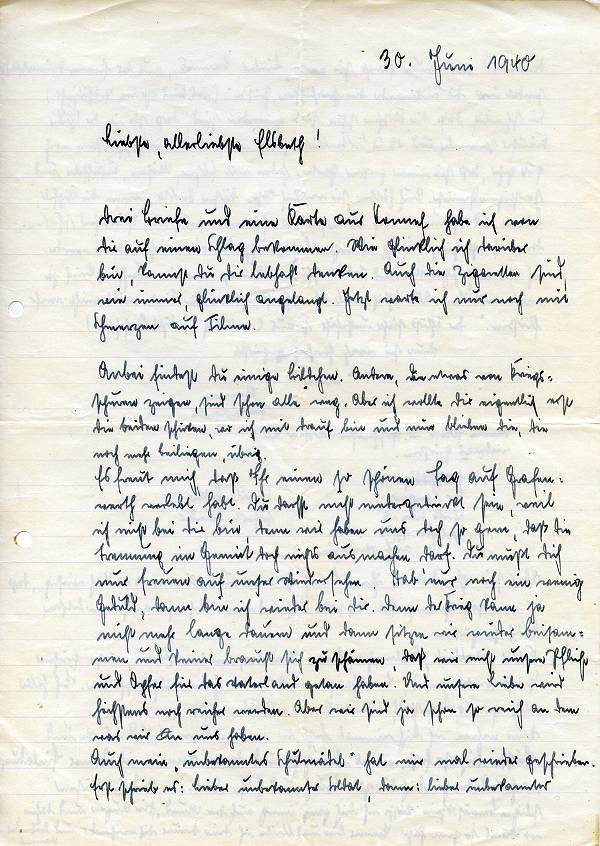 30. Juni 1940
Liebste, allerliebste Elsbeth!
Drei Briefe und eine Karte aus Honnef habe ich von
dir auf einen Schlag bekommen. Wie glücklich ich darüber
bin, kannst Du dir lebhaft denken. Auch die Zigaretten sind,
wie immer, glücklich angelangt. Jetzt warte ich nur noch mit
Schmerzen auf Filme.
Anbei findest Du einige Bildchen. Andere, die etwas von Kriegs=
spuren zeigen, sind schon alle weg. Aber ich wollte dir eigentlich erst
die beiden schicken, wo ich mit drauf bin und mir blieben die, die
noch mehr beiliegen, übrig.
Es freut mich, daß Ihr einen so schönen Tag auf Grafen=
werth verlebt habt. Du darfst nicht niedergedrückt sein, weil
ich nicht bei dir bin, denn wir haben uns doch so gern, daß die
Trennung im Gemüt doch nichts ausmachen darf. Du mußt dich
nur freuen auf unser Wiedersehen. Hab' nur noch ein wenig
Geduld, dann bin ich wieder bei dir. Denn der Krieg kann ja
nicht mehr lange dauern und dann sitzen wir wieder beisam=
men und keiner braucht sich zu schämen, daß wir nicht unsere Pflicht
und Opfer für das Vaterland getan haben. Und unsere Liebe wird
höchstens noch reicher werden. Aber wir sind ja schon so reich an dem
was wir an uns haben.
Auch mein "unbekanntes Schulmädel" hat mir mal wieder geschrieben.
Erst schrieb es: Lieber unbekannter Soldat, dann: lieber unbekannter